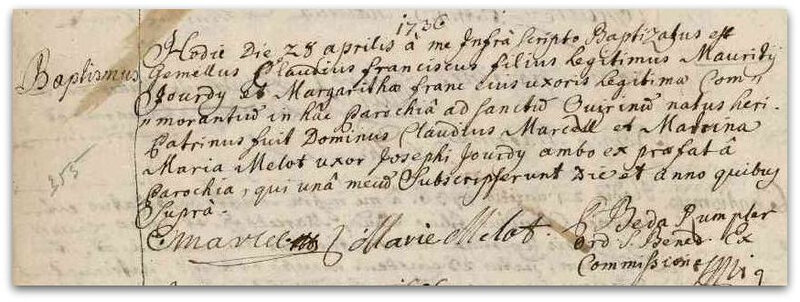 1736
Hodie Die 28 aprilis â me Infrâ Scripto Baptizatus est
Baptismus
Gemellus Claudius franciscus filius legitimus Maurity
Jourdy et Margarithæ franc eius uxoris legitimæ Com
morantiũ in hâc Parochiâ ad sanctũ Quirinũ natus heri
Patrinus fuit Dominus Claudius Marcell et Matrina
Maria Melot uxor Josephi Jourdy ambo ex præfatâ
Parochia, qui unâ mecũ Subscripserunt Die et anno quibus
Suprâ.
355
C marcel Marie Melot
P Beda Rumpler
ord S. Bened. Ex
Commissione